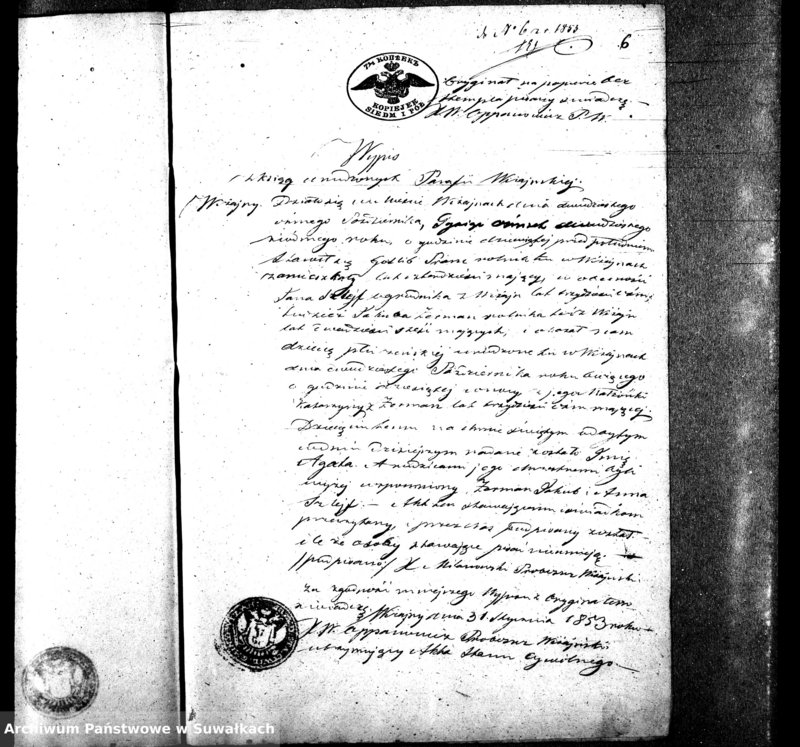 do Nº 6 ro 1853
6
7½ КОПѢЕКЪ
KOPIEJEK
SIEDM I PÓŁ
Oryginał na papierze bez
stempla pisany zaświadczę
X W. P. W.
Wypis
z ksiąg urodzonych Parafii Wiżajńskiej.
Wiżajny. Działo się w mieście Wiżajnach dnia dwudziestego
ósmego Października, Tysiąc ośmset dwudziestego
siódmego roku, o godzinie dziewiątej przed południem
Stawił się Gotlib rolnik w Wiżajnach
zamieszkały lat czterdzieści mający, w obecności
Jana Szlejf ogrodnika z Wiżajn lat trzydzieści ośm,
tudzież Jakuba Zorman rolnika też z Wiżajn
lat dwadzieścia sześć mających, i okazał nam
dziecię płci żeńskiej urodzone tu w Wiżajnach
dnia dwudziestego Października roku bieżącego
o godzinie dziesiątej z jego małżonki
Katarzyny z Zorman lat trzydzieści ośm mającej.
Dziecięciu temu na chrzcie świętym odbytym
w dniu dzisiejszym nadane zostało Imię
Agata. A rodzicami jego chrzestnemi byli
wyżej wspomniony Zorman Jakub i Anna
Szlejf. — Akt ten stawającym i świadkom
przeczytany, i przez nas podpisany został
ile że osoby stawające pisać nieumieją.
/podpisano/ X Milanowski Proboszcz Wiżajński
Za zgodność niniejszego Wypisu z Oryginałem
zaświadczę. Wiżajny dnia 31 Stycznia 1853 roku
X W. Proboszcz Wiżajński
utrzymujący Akta Stanu Cywilnego
Archiwum Państwowe w Suwałkach